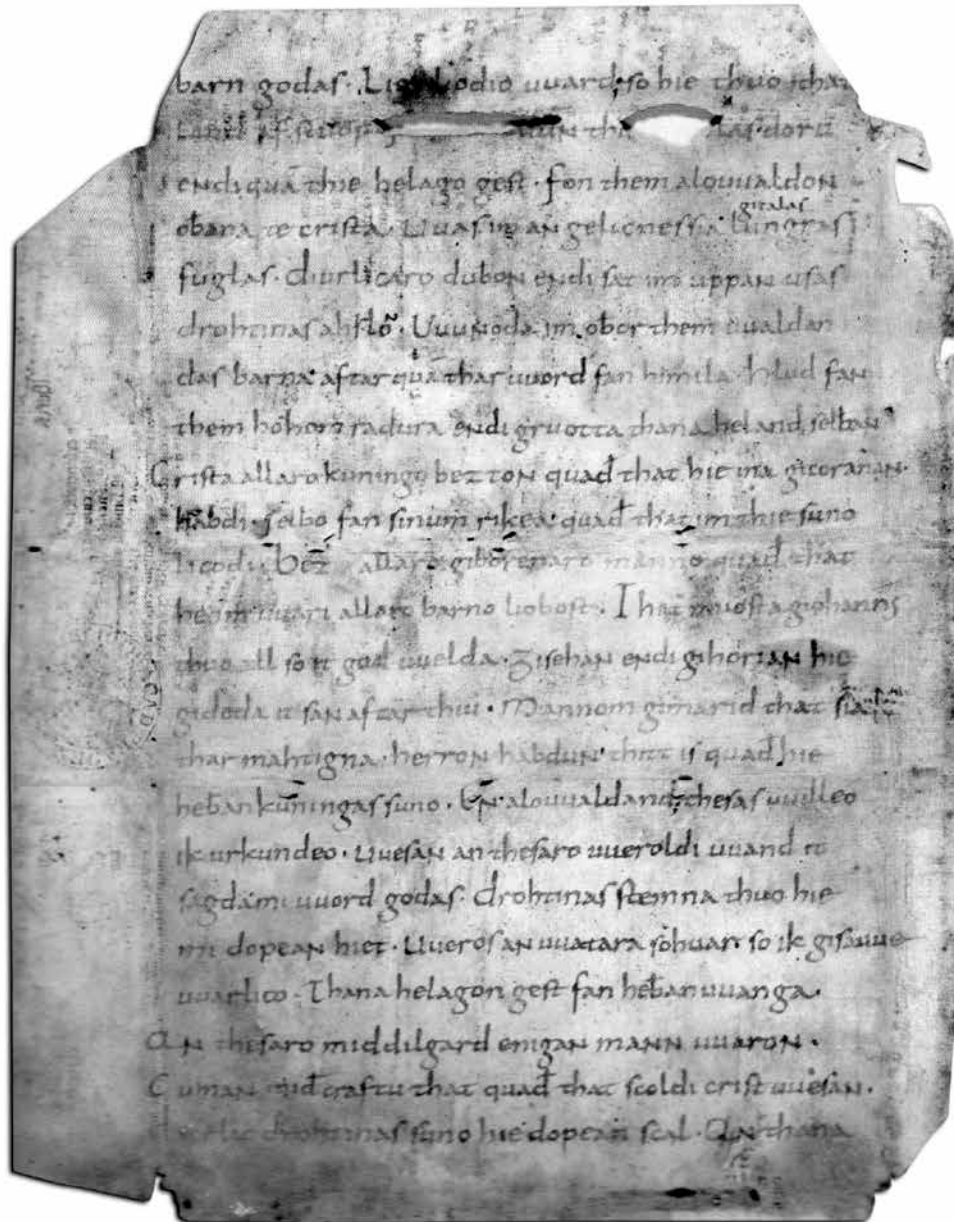 barn godas. Liof liodio uuard. so hie thuo that
land af stuop
endi quā thie helago gest. fon them alouualdon
oƀana te crista. Uuas im an gelicnessia lungras gitalas
fuglas. diurlicaro duƀon endi sat im uppan usas
drohtinas ahslō. Uuunoda im oƀor them uualdan
das barna. aftar quā thar uuord fan himila. hlud fan
them hohon radura endi gruotta thana heland selƀan
Crista allaro kuningo bezton quađ that hie ina gicoranan.
haƀdi. selƀo fan sinum rikea. quađ that im thie suno
licodi. Bez allaro giƀorenaro manno quađ that
he im uuari allaro barno lioƀost. That muosta giohannes
thuo all so it god uuelda. Gisehan endi gihorian hie
gidoda it san aftar thiu. Mannom gimarid that sia
thar mahtigna. herron haƀdun. thitt is quađ hie
heƀankuningas suno. En alouualdand. thesas uuilleo
ik urkundeo. Uuesan an thesaro uueroldi uuand it
sagda mi uuord godas. drohtinas stemna thuo hie
mi dopean hiet. Uueros an uuatara so huar so ik gisauue
uuarlico. Thana helagon gest fan heƀanuuanga.
An thesaro middilgard enigan mann uuaron.
Cuman mid craftu that quađ that scoldi crist uuesan.
diurlic drohtinas suno hie dopean scal. An thana